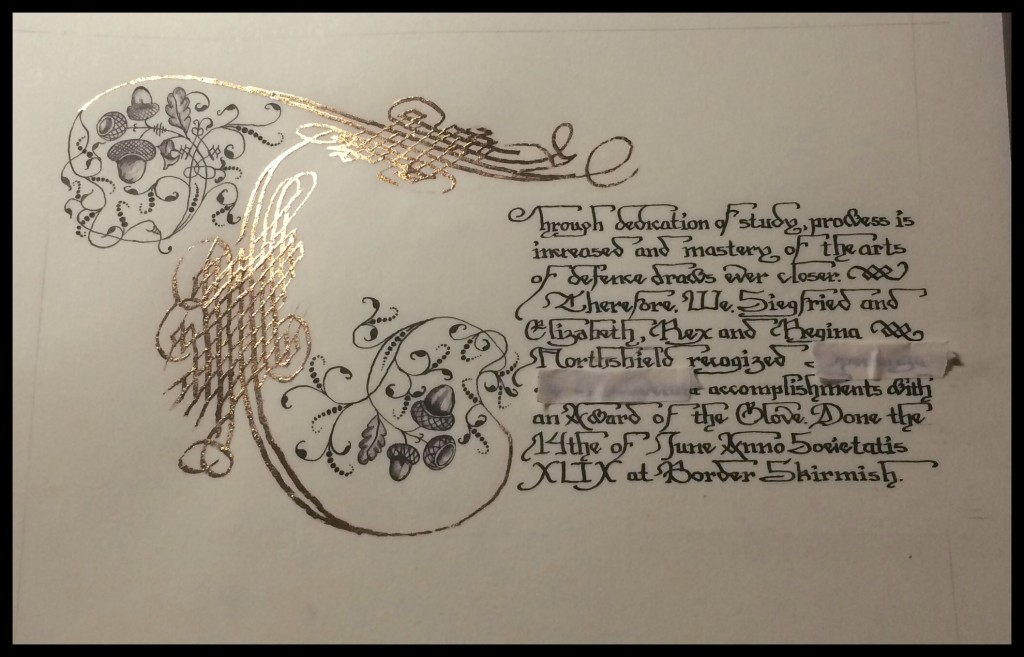 Through dedication of study, prowess is
increased and mastery of the arts
of defence draws ever closer.
Therefore, We, Siegfried and
Elizabeth, Rex and Regina
Northshield recogized
accomplishments with
an Award of the Glove. Done the
14the of June Anno Societatis
XLIX at Border Skirmish.